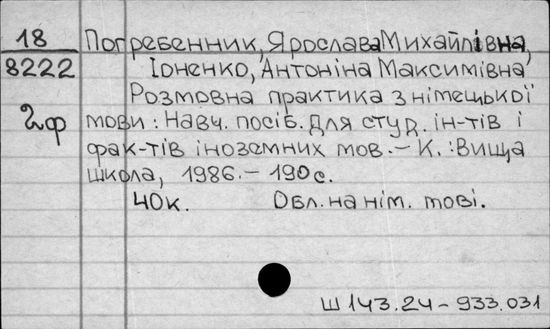 18 Погребенник, Ярослава Михайлівна,
8222 Іоненко, Антоніна Максимівна
Розмовна практика з німецької
2ф мови: Навч. посіб. для студ. ін-тів і
фак-тів іноземних мов. – К. : Вища
школа, 1986. – 190 с.
40к. Обл. на нім. мові.
Ш 143.24 – 933.031